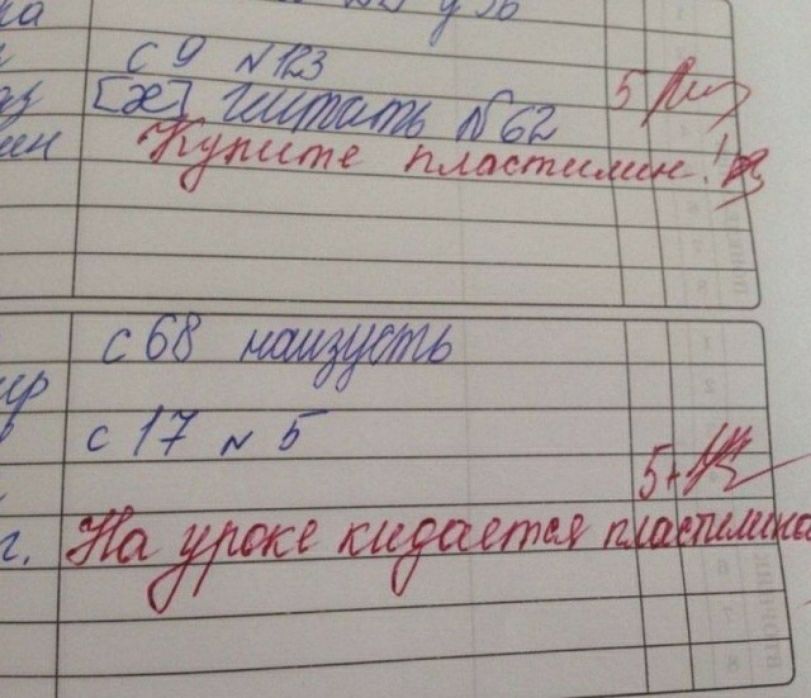 с 9 № 123
[ж] читать № 62 5
Купите пластилин!
с 68 наизусть
с 17 № 5
5+
На уроке кидается пластилино